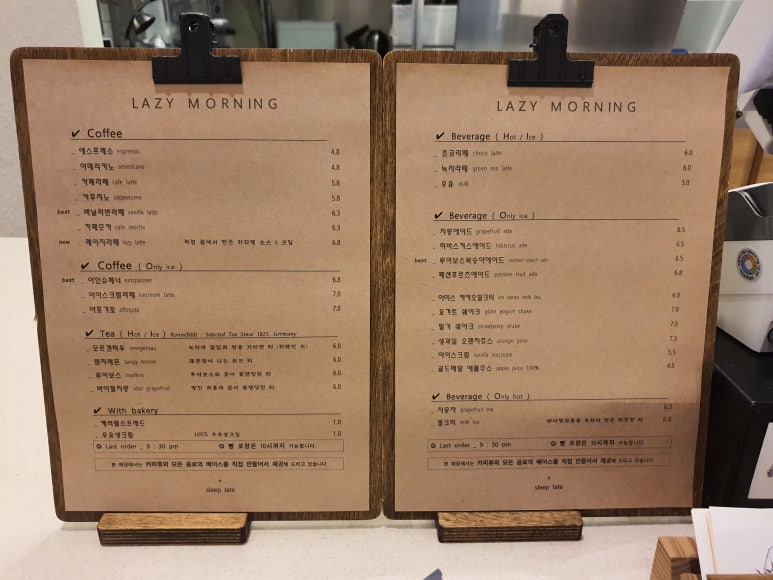 LAZY MORNING
✔ Coffee
_ 에스프레소 espresso 4.8
_ 아메리카노 americano 4.8
_ 카페라떼 cafe latte 5.8
_ 카푸치노 cappuccino 5.8
best _ 바닐라빈라떼 vanilla latte 6.3
_ 카페모카 cafe mocha 6.3
new _ 레이지라떼 lazy latte 직접 끓여서 만든 카라멜 소스 & 크림 6.8
✔ Coffee ( Only ice )
best _ 아인슈페너 einspanner 6.8
_ 아이스크림라떼 icecream latte 7.0
_ 아포가토 affogato 7.0
✔ Tea ( Hot / Ice ) Ronnefeldt : Selected Tea Since 1823, Germany
_ 모르겐타우 morgentau 6.0
_ 텐저레몬 tangy lemon 6.0
_ 루이보스 rooibos 6.0
_ 바이탈자몽 vital grapefruit 6.0
✔ With bakery
_ 캐러멜스프레드 1.0
_ 우유생크림 100% 우유생크림 1.0
Last order _ 9 : 30 pm 빵 포장은 10시까지 가능합니다.
본 매장에서는 커피류외 모든 음료의 베이스를 직접 만들어서 제공해 드리고 있습니다.
sleep late
LAZY MORNING
✔ Beverage ( Hot / Ice )
_ 초코라떼 choco latte 6.0
_ 녹차라떼 green tea latte 6.0
_ 우유 milk 3.0
✔ Beverage ( Only ice )
_ 자몽에이드 grapefruit ade 6.5
_ 히비스커스에이드 hibiscus ade 6.5
best _ 루이보스복숭아에이드 rooibos peach ade 6.5
_ 패션후르츠에이드 passion fruit ade 6.8
_ 아이스 카카오밀크티 ice cacao milk tea 6.0
_ 요거트 쉐이크 plain yogurt shake 7.0
_ 딸기 쉐이크 strawberry shake 7.0
_ 생과일 오렌지쥬스 orange juice 7.3
_ 아이스크림 vanilla icecream 5.5
_ 골드메달 애플쥬스 apple juice 100% 4.5
✔ Beverage ( Only hot )
_ 자몽차 grapefruit tea 6.3
_ 밀크티 milk tea 6.0
Last order _ 9 : 30 pm 빵 포장은 10시까지 가능합니다.
본 매장에서는 커피류외 모든 음료의 베이스를 직접 만들어서 제공해 드리고 있습니다.
sleep late